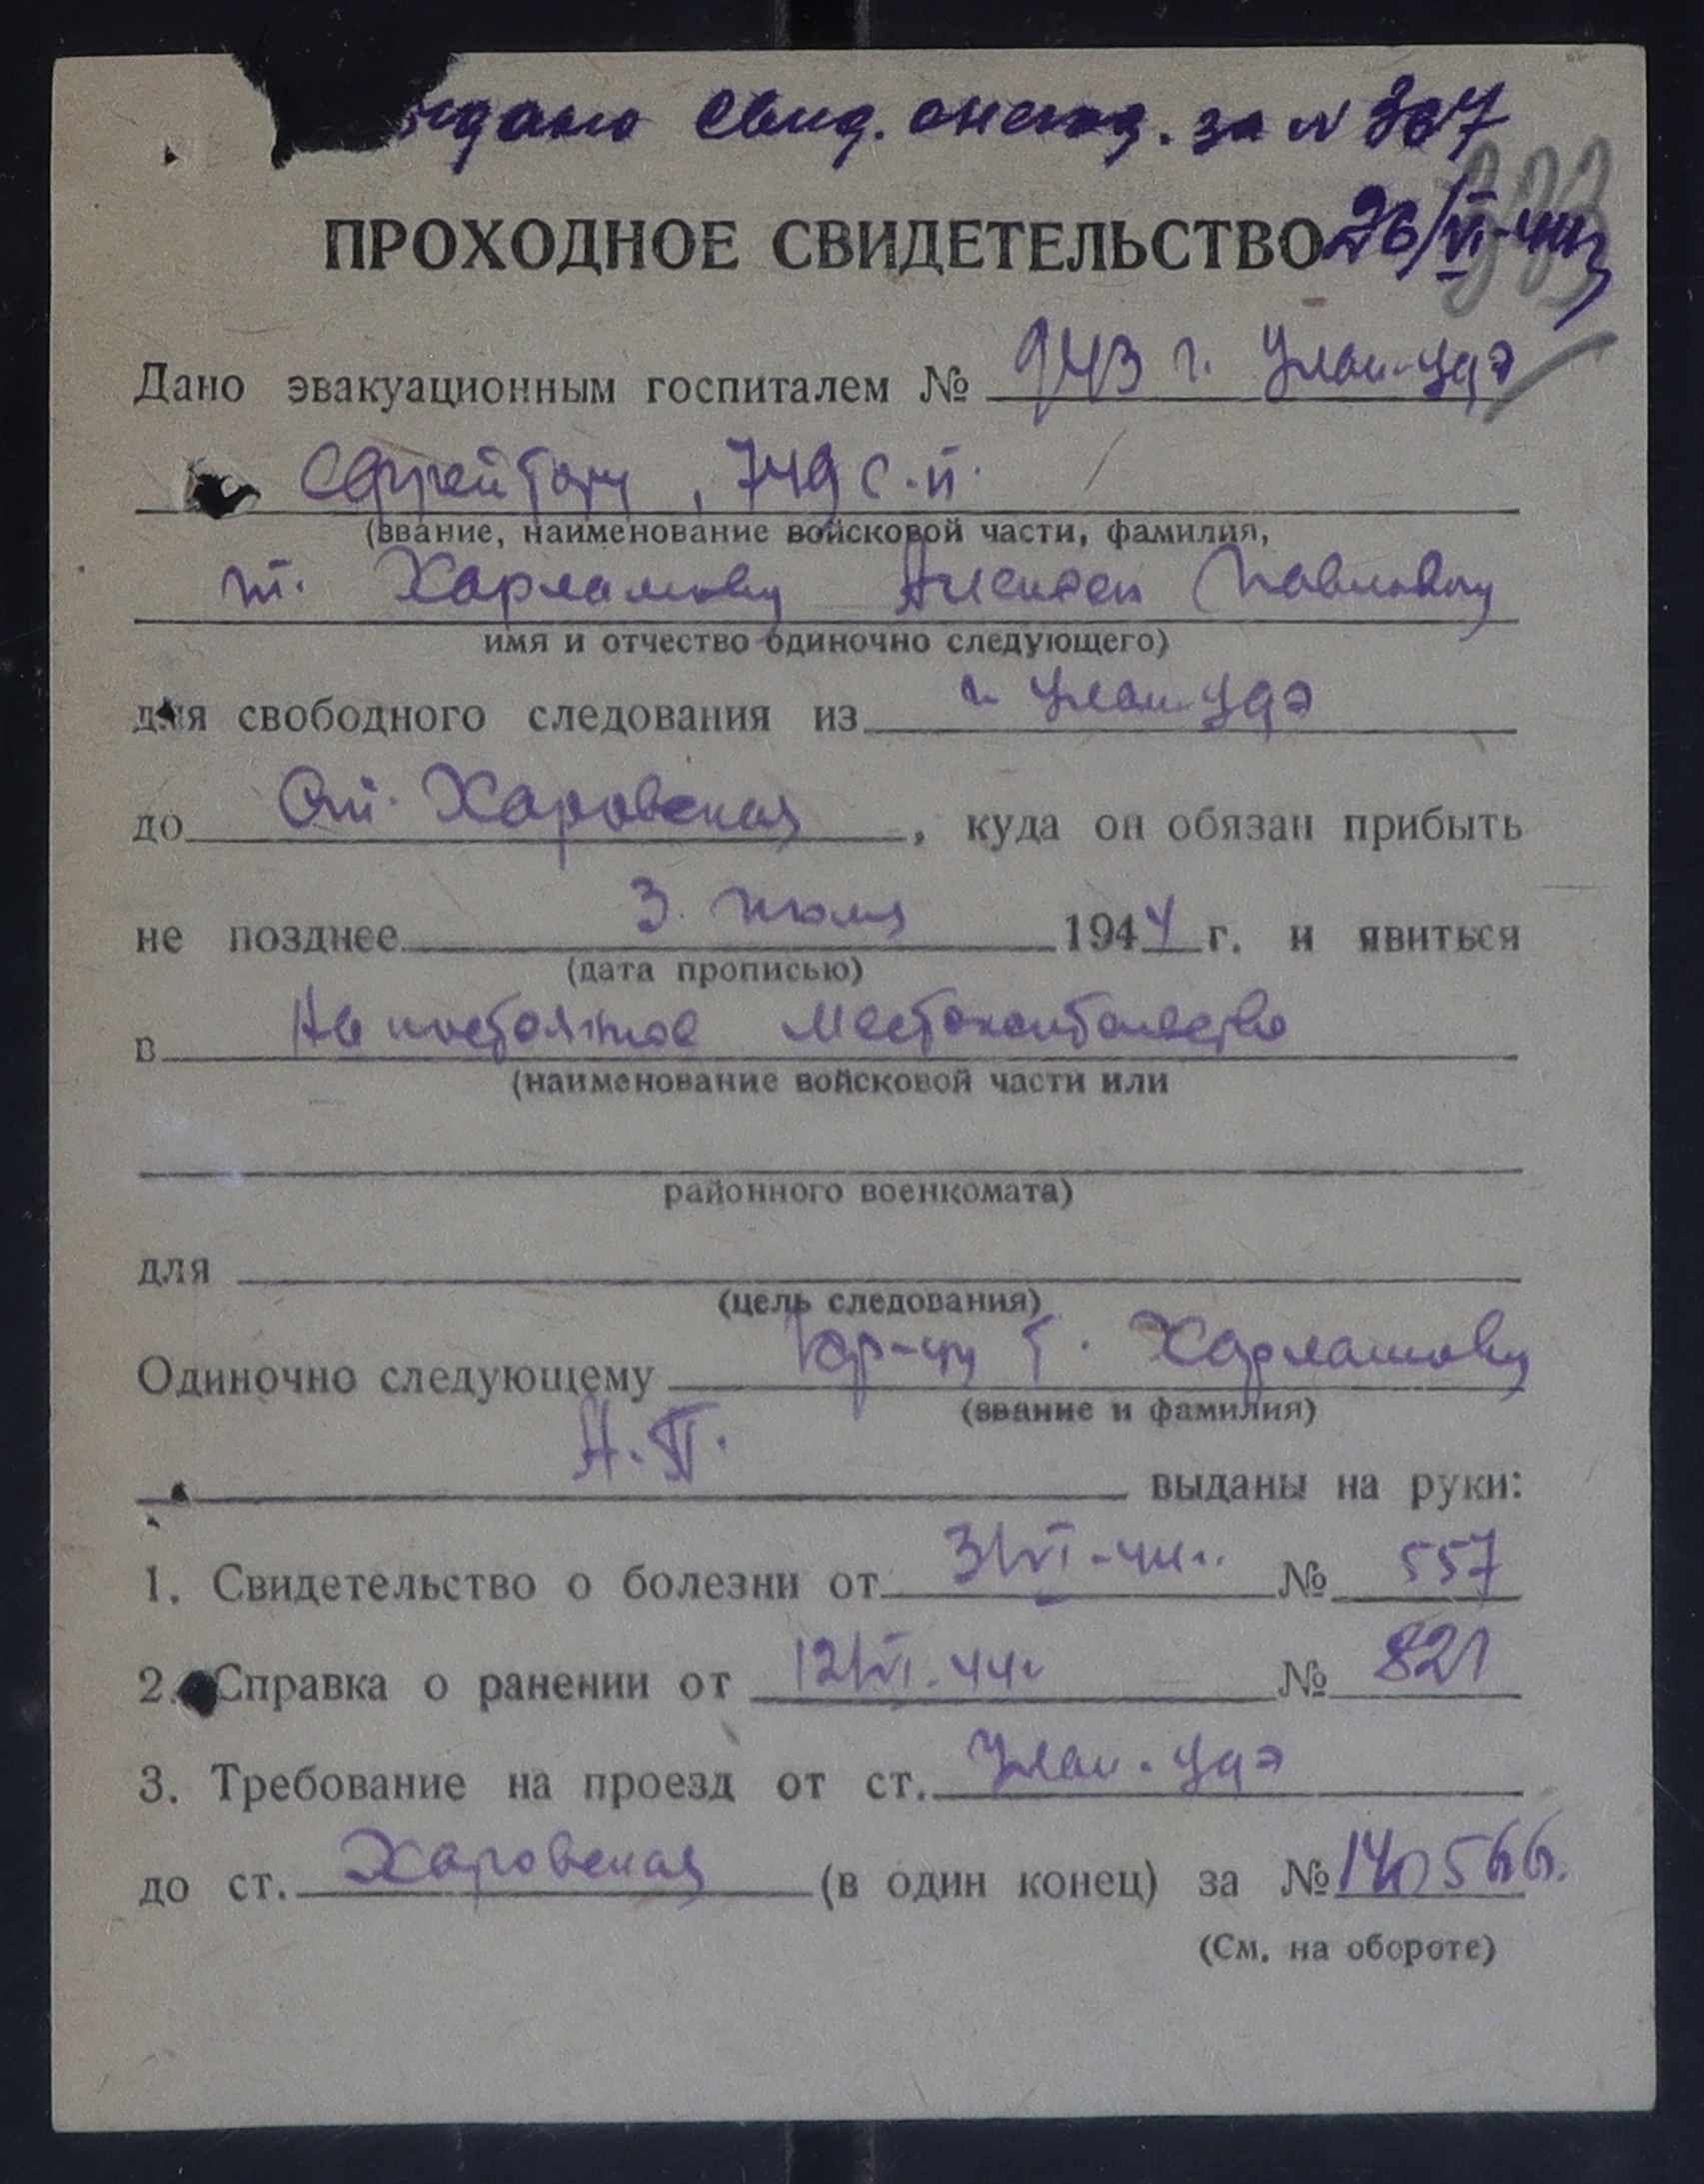 Свид. за № 367
ПРОХОДНОЕ СВИДЕТЕЛЬСТВО 26/VI-44г
Дано эвакуационным госпиталем № 943 г. Улан-Удэ
Ефрейтору, 749 с.п.
(звание, наименование войсковой части, фамилия,
т. Харламову Алексей Павлович
имя и отчество одиночно следующего)
для свободного следования из г. Улан-Удэ
до Ст. Харовская, куда он обязан прибыть
не позднее 3. июля 1944 г. и явиться
(дата прописью)
в На постоянное Местожительство
(наименование войсковой части или
районного военкомата)
для
(цель следования)
Одиночно следующему т. Харламову
(звание и фамилия)
А.П. выданы на руки:
1. Свидетельство о болезни от 3/VI-44г. № 557
2. Справка о ранении от 12/VI-44г № 821
3. Требование на проезд от ст. Улан-Удэ
до ст. Харовская (в один конец) за № 140566.
(См. на обороте)